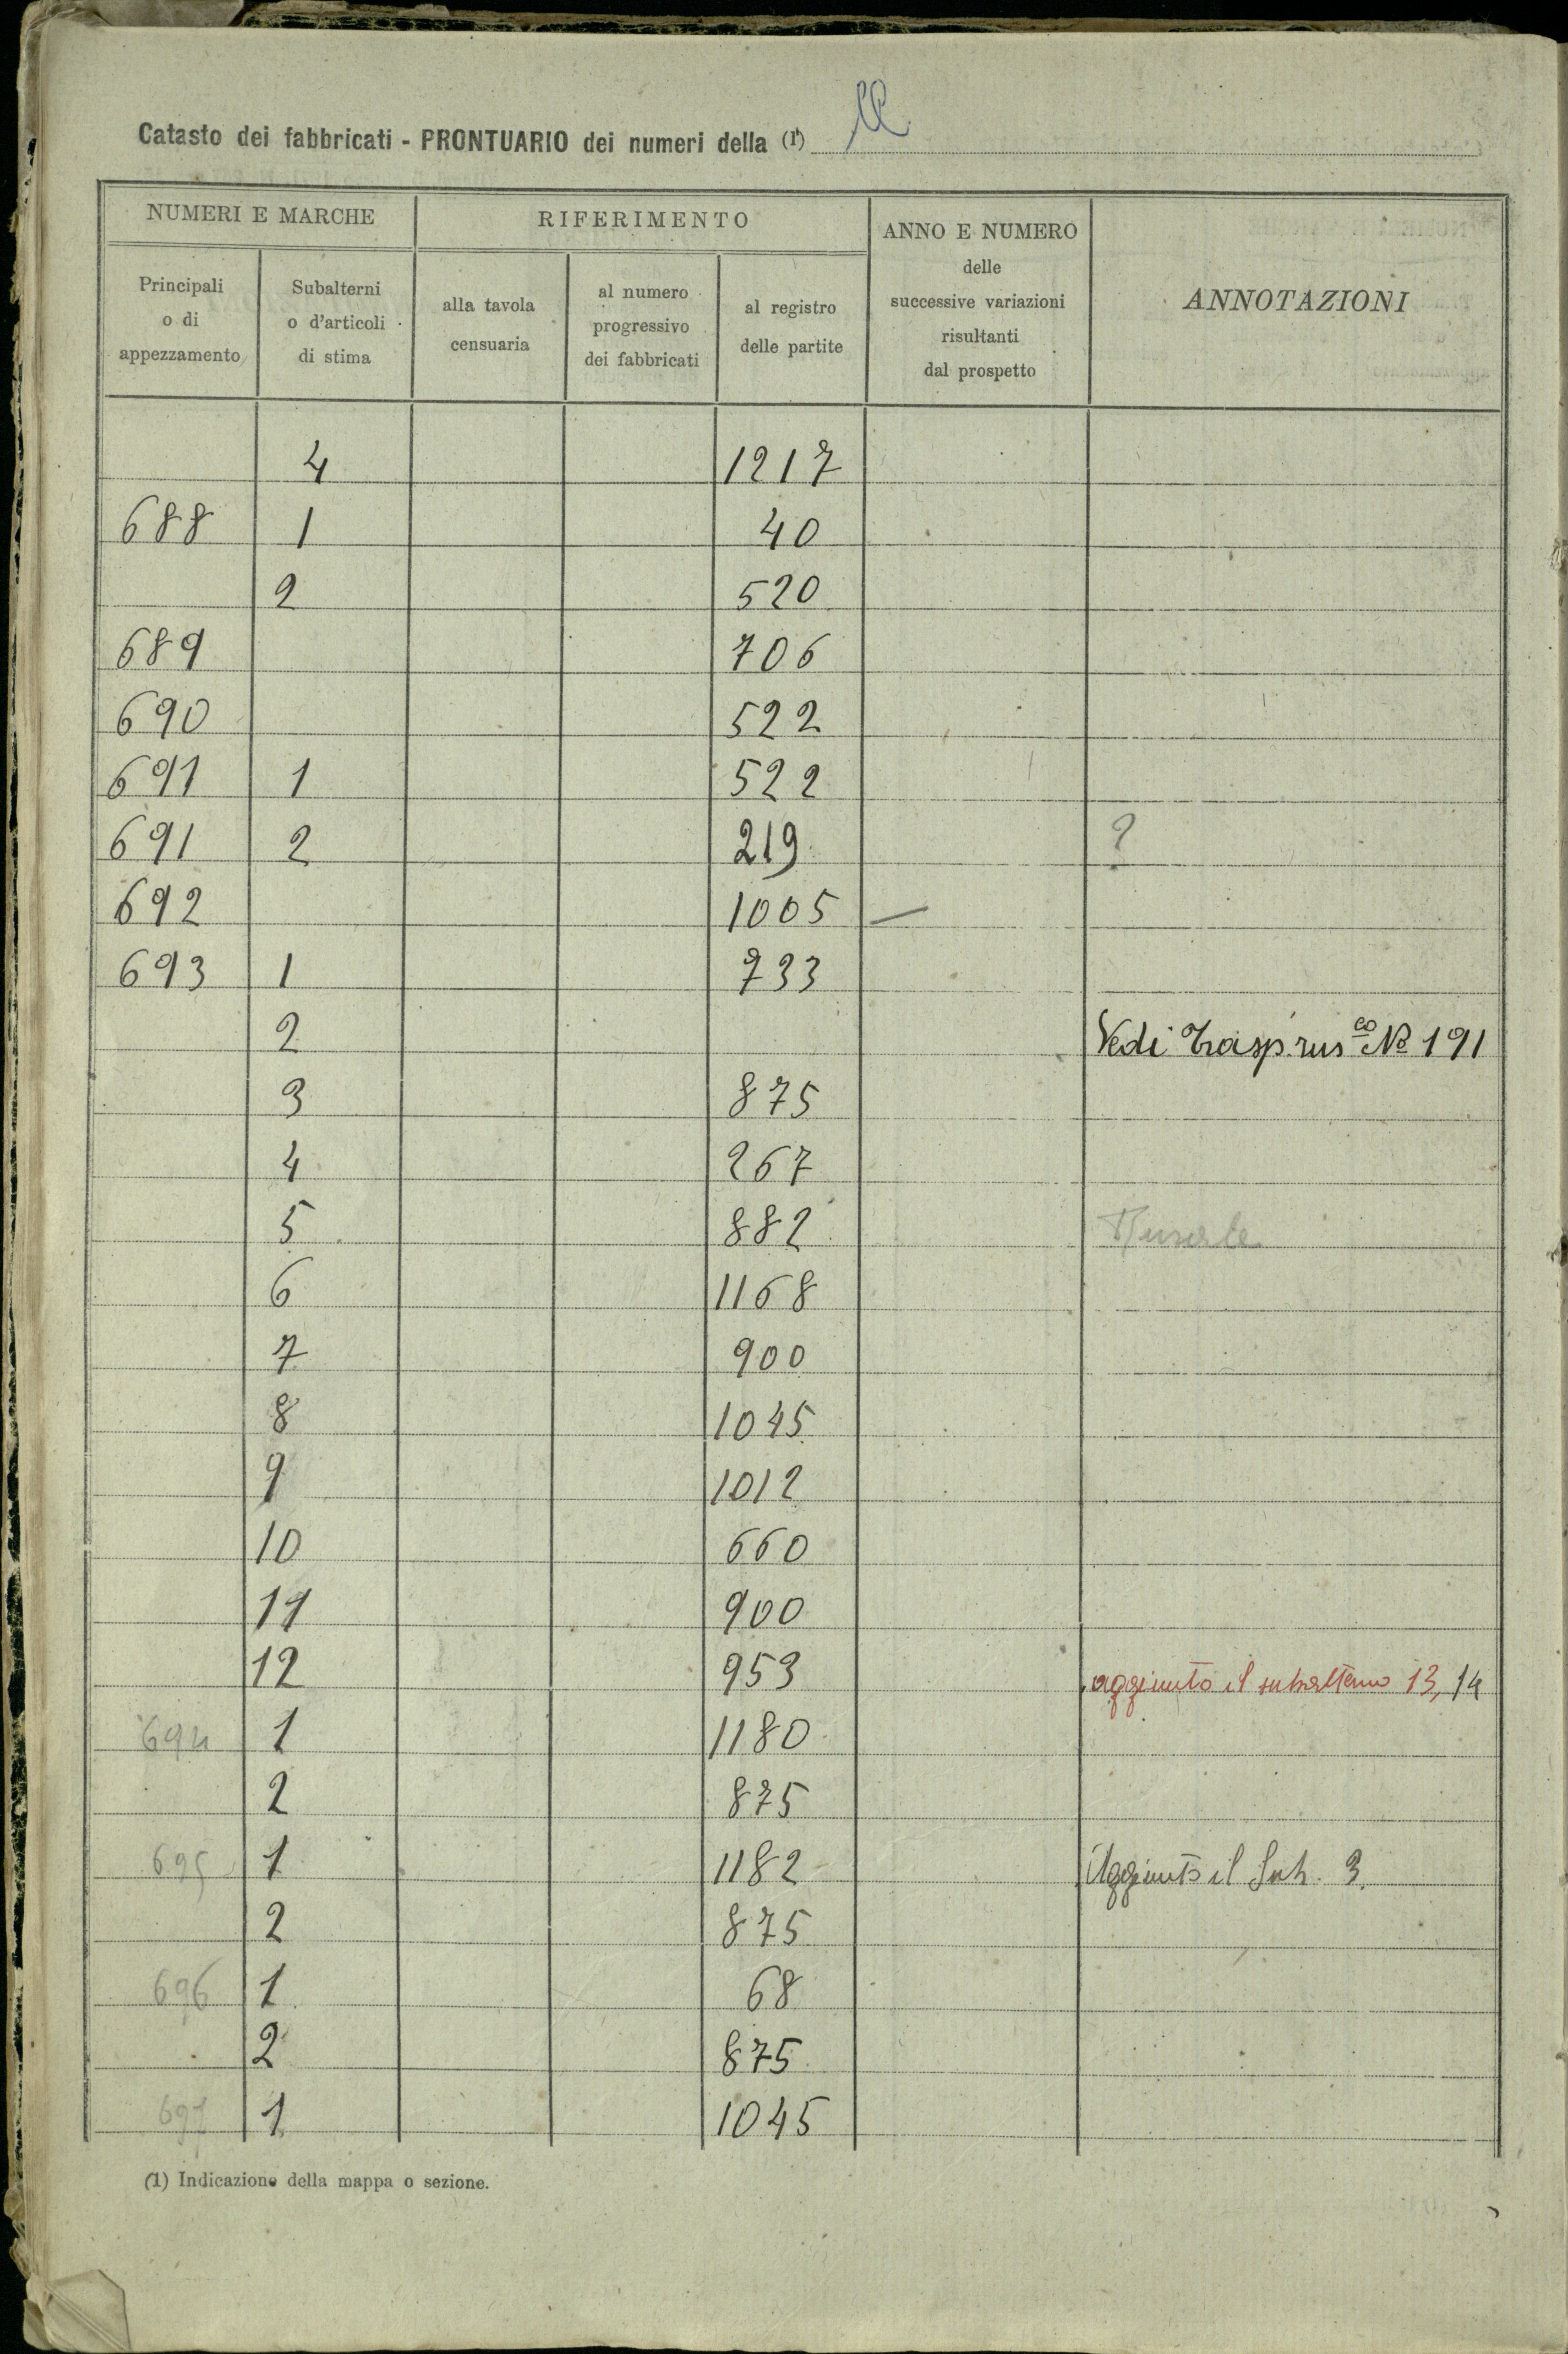 Catasto dei fabbricati - PRONTUARIO dei numeri della (1)
NUMERI E MARCHE
RIFERIMENTO
ANNO E NUMERO
delle
successive variazioni
risultanti
dal prospetto
ANNOTAZIONI
Principali
o di
appezzamento
Subalterni
o d'articoli
di stima
alla tavola
censuaria
al numero
progressivo
dei fabbricati
al registro
delle partite
4 1217
688 1 40
2 520
689 706
690 522
691 1 522
691 2 219 ?
692 1005 —
693 1 733
2 Vedi Trasp. rus co No 191
3 875
4 267
5 882
6 1168
7 900
8 1045
9 1012
10 660
11 900
12 953 aggiunto il subalterno 13, 14
694 1 1180
2 875
695 1 1182 Aggiunto il Sub. 3.
2 875
696 1 68
2 875
697 1 1045
(1) Indicazione della mappa o sezione.